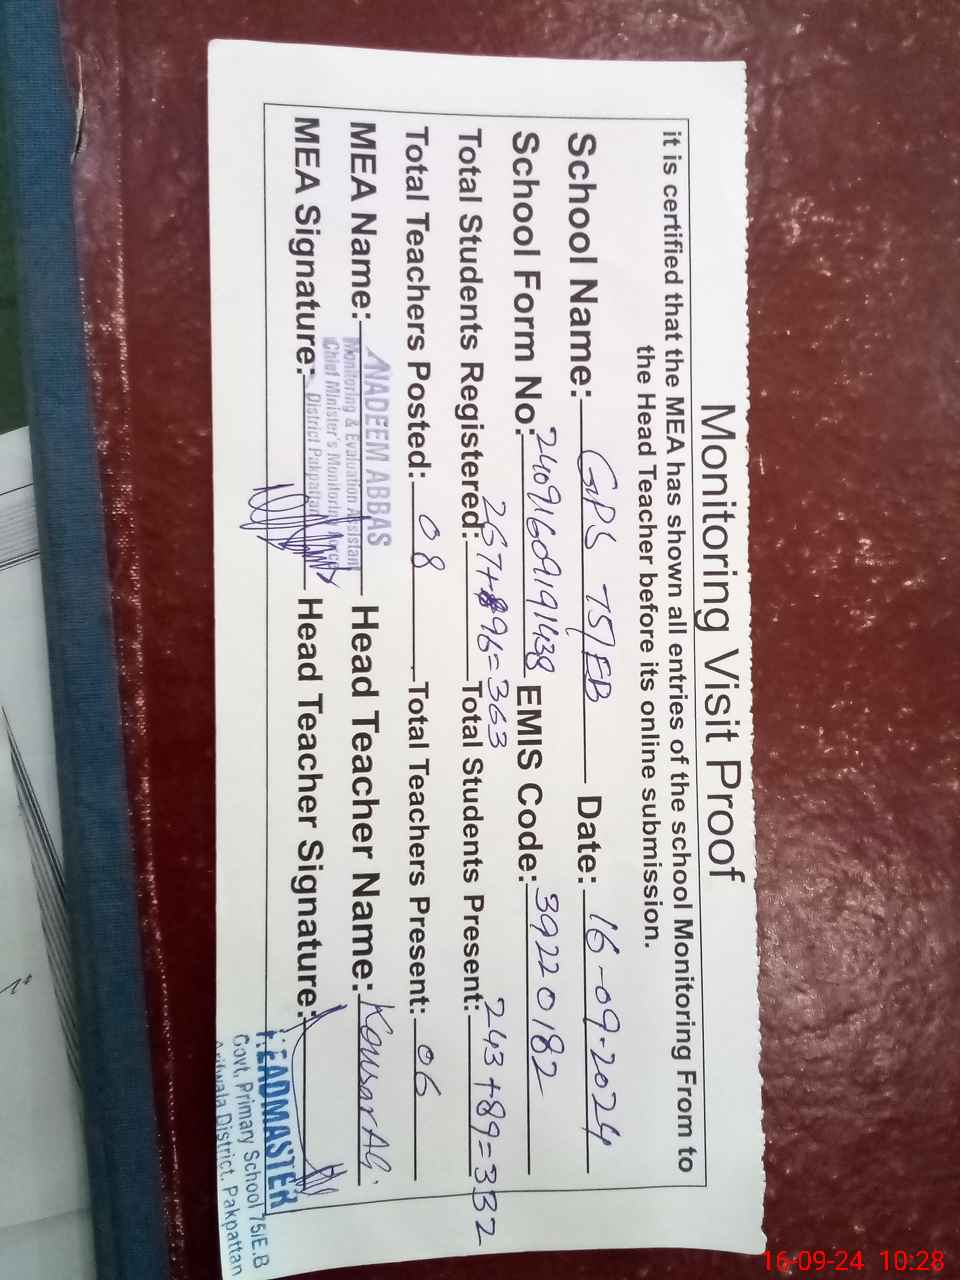 Monitoring Visit Proof
it is certified that the MEA has shown all entries of the school Monitoring From to
the Head Teacher before its online submission.
School Name: GPS 75/EB Date: 16-09-2024
School Form No: 24091609191438 EMIS Code: 39220182
Total Students Registered: 267+96=363 Total Students Present: 243+89=332
Total Teachers Posted: 08 Total Teachers Present: 06
MEA Name: NADEEM ABBAS Head Teacher Name: Kousar Ali
Monitoring & Evaluation Assistant
Chief Minister's Monitoring Force
District Pakpattan
MEA Signature: Head Teacher Signature:
HEADMASTER
Govt. Primary School 75/E.B
Arifwala District. Pakpattan
16-09-24 10:28